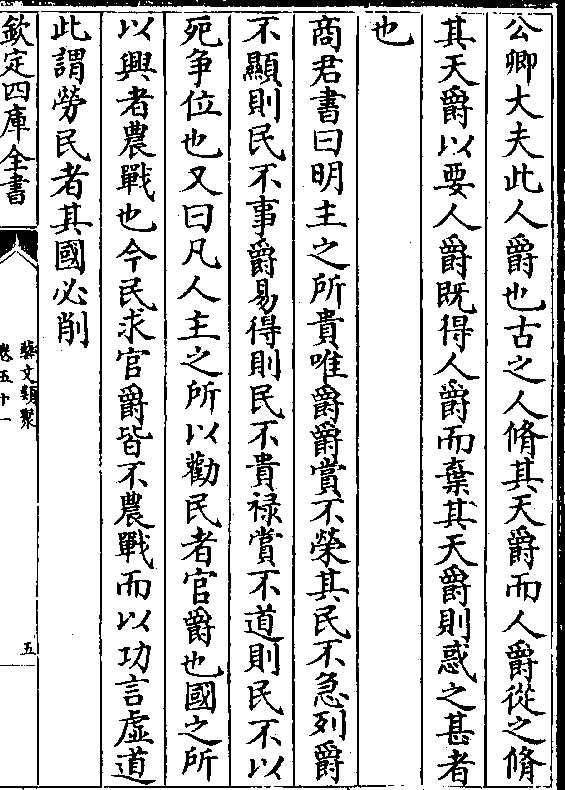 公卿大夫此人爵也古之人脩其天爵而人爵從之脩
其天爵以要人爵既得人爵而棄其天爵則惑之甚者
也
商君書曰明主之所貴唯爵爵賞不榮其民不急列爵
不顯則民不事爵易得則民不貴禄賞不道則民不以
死争位也又曰凡人主之所以勸民者官爵也國之所
以興者農戰也今民求官爵皆不農戰而以功言虛道
此謂勞民者其國必削
欽定四庫全書
藝文類聚
卷五十一
五